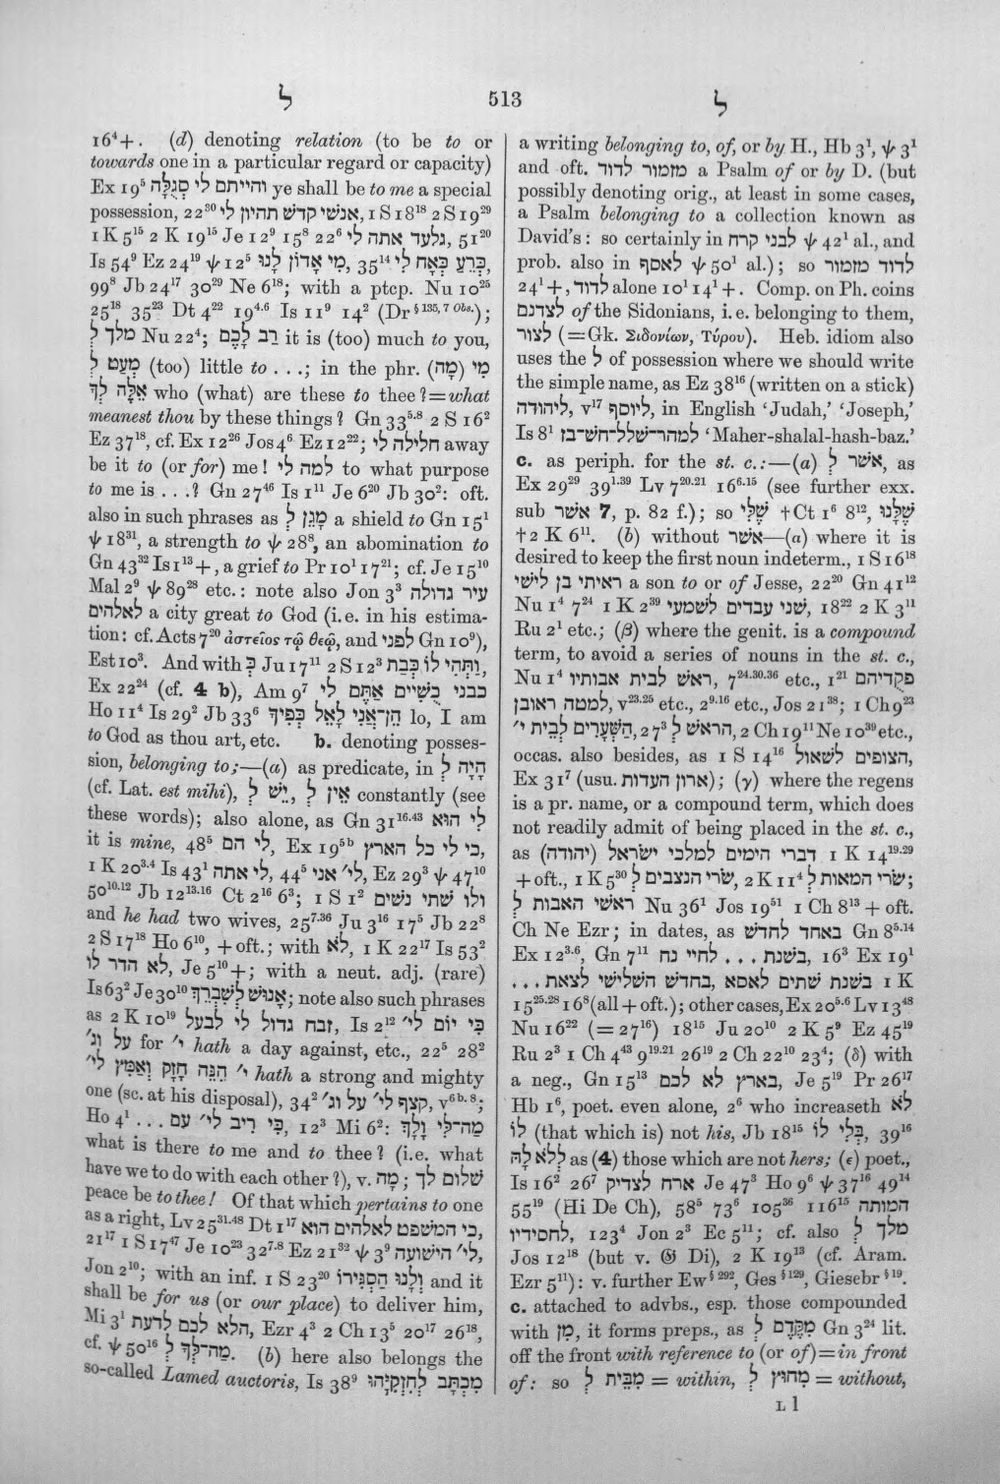 ל 513 ל
16⁴+. (d) denoting relation (to be to or
towards one in a particular regard or capacity)
Ex 19⁵ והייתם לי סְגֻלָּה ye shall be to me a special
possession, 22³⁰ אנשי קדש תהיון לי, 1 S 18¹⁸ 2 S 19²⁹
1 K 5¹⁵ 2 K 19¹⁵ Je 12⁹ 15⁸ 22⁶ גלעד אתה לי, 51²⁰
Is 54⁹ Ez 24¹⁹ ψ 12⁵ מִי אָדוֹן לָנוּ, 35¹⁴ כְּרֵעַ כְּאָח לִי,
99⁸ Jb 24¹⁷ 30²⁹ Ne 6¹⁸; with a ptcp. Nu 10²⁵
25¹⁸ 35²³ Dt 4²² 19⁴·⁶ Is 11⁹ 14² (Dr § 135, 7 Obs.);
מלך לְ Nu 22⁴; רַב לָכֶם it is (too) much to you,
מְעַט לְ (too) little to . . .; in the phr. מִי (מָה)
אֵלֶּה לְּךָ who (what) are these to thee?=what
meanest thou by these things? Gn 33⁵·⁸ 2 S 16²
Ez 37¹⁸, cf. Ex 12²⁶ Jos 4⁶ Ez 12²²; חלילה לי away
be it to (or for) me! למה לי to what purpose
to me is . . .? Gn 27⁴⁶ Is 1¹¹ Je 6²⁰ Jb 30²: oft.
also in such phrases as מָגֵן לְ a shield to Gn 15¹
ψ 18³¹, a strength to ψ 28⁸, an abomination to
Gn 43³² Is 1¹³+, a grief to Pr 10¹ 17²¹; cf. Je 15¹⁰
Mal 2⁹ ψ 89²⁸ etc.: note also Jon 3³ עיר גדולה
לאלהים a city great to God (i.e. in his estima-
tion: cf. Acts 7²⁰ ἀστεῖος τῷ θεῷ, and לפני Gn 10⁹),
Est 10³. And with כְּ Ju 17¹¹ 2 S 12³ וַתְּהִי לוֹ כְּבַת,
Ex 22²⁴ (cf. 4 b), Am 9⁷ כבני כֻשִׁיים אַתֶּם לִי
Ho 11⁴ Is 29² Jb 33⁶ הֵן־אֲנִי לָאֵל כְּפִיךָ lo, I am
to God as thou art, etc. b. denoting posses-
sion, belonging to;—(a) as predicate, in הָיָה לְ
(cf. Lat. est mihi), יֵשׁ לְ, אֵין לְ constantly (see
these words); also alone, as Gn 31¹⁶·⁴³ לִי הוא
it is mine, 48⁵ לי הם, Ex 19⁵ᵇ כי לי כל הארץ,
1 K 20³·⁴ Is 43¹ לי אתה, 44⁵ לי״ אני, Ez 29³ ψ 47¹⁰
50¹⁰·¹² Jb 12¹³·¹⁶ Ct 2¹⁶ 6³; 1 S 1² ולו שתי נשים
and he had two wives, 25⁷·³⁶ Ju 3¹⁶ 17⁵ Jb 22⁸
2 S 17¹⁸ Ho 6¹⁰, + oft.; with לֹא, 1 K 22¹⁷ Is 53²
לא הדר לו, Je 5¹⁰+; with a neut. adj. (rare)
Is 63² Je 30¹⁰ אָנוּשׁ לְשִׁבְרֵךְ; note also such phrases
as 2 K 10¹⁹ זבח גדול לי לבעל, Is 2¹² כִּי יוֹם לי״
על וג׳ for י״ hath a day against, etc., 22⁵ 28²
הִנֵּה חָזָק וְאַמִּץ לי״ י״ hath a strong and mighty
one (sc. at his disposal), 34² קצף לי״ על וג׳, v⁶ᵇ·⁸;
Ho 4¹ . . . כִּי ריב לי״ עם, 12³ Mi 6²: מַה־לִּי וָלָךְ
what is there to me and to thee? (i.e. what
have we to do with each other?), v. מָה; שלום לך
peace be to thee! Of that which pertains to one
as a right, Lv 25³¹·⁴⁸ Dt 1¹⁷ כי המשפט לאלהים הוא,
21¹⁷ 1 S 17⁴⁷ Je 10²³ 32⁷·⁸ Ez 21³² ψ 3⁹ לי״ הישועה,
Jon 2¹⁰; with an inf. 1 S 23²⁰ וְלָנוּ הַסְגִּירוֹ and it
shall be for us (or our place) to deliver him,
Mi 3¹ הלא לכם לדעת, Ezr 4³ 2 Ch 13⁵ 20¹⁷ 26¹⁸,
cf. ψ 50¹⁶ מַה־לְּךָ לְ. (b) here also belongs the
so-called Lamed auctoris, Is 38⁹ מִכְתָּב לְחִזְקִיָּהוּ
a writing belonging to, of, or by H., Hb 3¹, ψ 3¹
and oft. מזמור לדוד a Psalm of or by D. (but
possibly denoting orig., at least in some cases,
a Psalm belonging to a collection known as
David's: so certainly in לבני קרח ψ 42¹ al., and
prob. also in לאסף ψ 50¹ al.); so לדוד מזמור
24¹+, לדוד alone 10¹ 14¹+. Comp. on Ph. coins
לצדנם of the Sidonians, i.e. belonging to them,
לצור (=Gk. Σιδονίων, Τύρου). Heb. idiom also
uses the לְ of possession where we should write
the simple name, as Ez 38¹⁶ (written on a stick)
ליהודה, v¹⁷ ליוסף, in English ‘Judah,’ ‘Joseph,’
Is 8¹ למהר־שלל־חש־בז ‘Maher-shalal-hash-baz.’
c. as periph. for the st. c.:—(a) אשר לְ, as
Ex 29²⁹ 39¹·³⁹ Lv 7²⁰·²¹ 16⁶·¹⁵ (see further exx.
sub אשר 7, p. 82 f.); so שֶׁלִּי †Ct 1⁶ 8¹², שֶׁלָּנוּ
†2 K 6¹¹. (b) without אשר—(α) where it is
desired to keep the first noun indeterm., 1 S 16¹⁸
ראיתי בן לישי a son to or of Jesse, 22²⁰ Gn 41¹²
Nu 1⁴ 7²⁴ 1 K 2³⁹ שני עבדים לשמעי, 18²² 2 K 3¹¹
Ru 2¹ etc.; (β) where the genit. is a compound
term, to avoid a series of nouns in the st. c.,
Nu 1⁴ ראש לבית אבותיו, 7²⁴·³⁰·³⁶ etc., 1²¹ פקדיהם
למטה ראובן, v²³·²⁵ etc., 2⁹·¹⁶ etc., Jos 21³⁸; 1 Ch 9²³
הַשְּׁעָרִים לְבֵית י״, 27³ הראש לְ, 2 Ch 19¹¹ Ne 10³⁹ etc.,
occas. also besides, as 1 S 14¹⁶ הצופים לשאול,
Ex 31⁷ (usu. ארון העדות); (γ) where the regens
is a pr. name, or a compound term, which does
not readily admit of being placed in the st. c.,
as דברי הימים למלכי ישראל (יהודה) 1 K 14¹⁹·²⁹
+ oft., 1 K 5³⁰ שרי הנצבים לְ, 2 K 11⁴ שרי המאות לְ;
ראשי האבות לְ Nu 36¹ Jos 19⁵¹ 1 Ch 8¹³ + oft.
Ch Ne Ezr; in dates, as באחד לחדש Gn 8⁵·¹⁴
Ex 12³·⁶, Gn 7¹¹ בשנת . . . לחיי נח, 16³ Ex 19¹
בחדש השלישי לצאת . . ., בשנת שתים לאסא 1 K
15²⁵·²⁸ 16⁸ (all + oft.); other cases, Ex 20⁵·⁶ Lv 13⁴⁸
Nu 16²² (= 27¹⁶) 18¹⁵ Ju 20¹⁰ 2 K 5⁹ Ez 45¹⁹
Ru 2³ 1 Ch 4⁴³ 9¹⁹·²¹ 26¹⁹ 2 Ch 22¹⁰ 23⁴; (δ) with
a neg., Gn 15¹³ בארץ לא לכם, Je 5¹⁹ Pr 26¹⁷
Hb 1⁶, poet. even alone, 2⁶ who increaseth לֹא
לוֹ (that which is) not his, Jb 18¹⁵ מִבְּלִי לוֹ, 39¹⁶
לְּלֹא לָהּ as (4) those which are not hers; (ε) poet.,
Is 16² 26⁷ ארח לצדיק Je 47³ Ho 9⁶ ψ 37¹⁶ 49¹⁴
55¹⁹ (Hi De Ch), 58⁵ 73⁶ 105³⁶ 116¹⁵ המותה
לחסידיו, 123⁴ Jon 2³ Ec 5¹¹; cf. also מלך לְ
Jos 12¹⁸ (but v. 𝔊 Di), 2 K 19¹³ (cf. Aram.
Ezr 5¹¹): v. further Ew § 292, Ges § 129, Giesebr § 19.
c. attached to advbs., esp. those compounded
with מִן, it forms preps., as מִקֶּדֶם לְ Gn 3²⁴ lit.
off the front with reference to (or of)=in front
of: so מִבֵּית לְ = within, מִחוּץ לְ = without,
L l